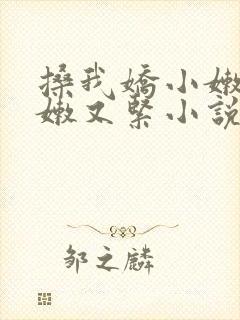 搡我嬌小嫩
嫩又緊小說
鄒之麟